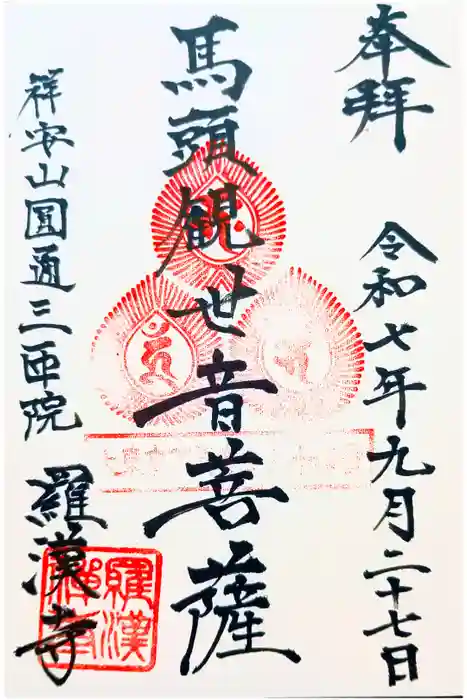 奉拝
令和七年九月二十七日
馬頭観世音菩薩
祥安山圓通三匝院
羅漢寺
羅漢